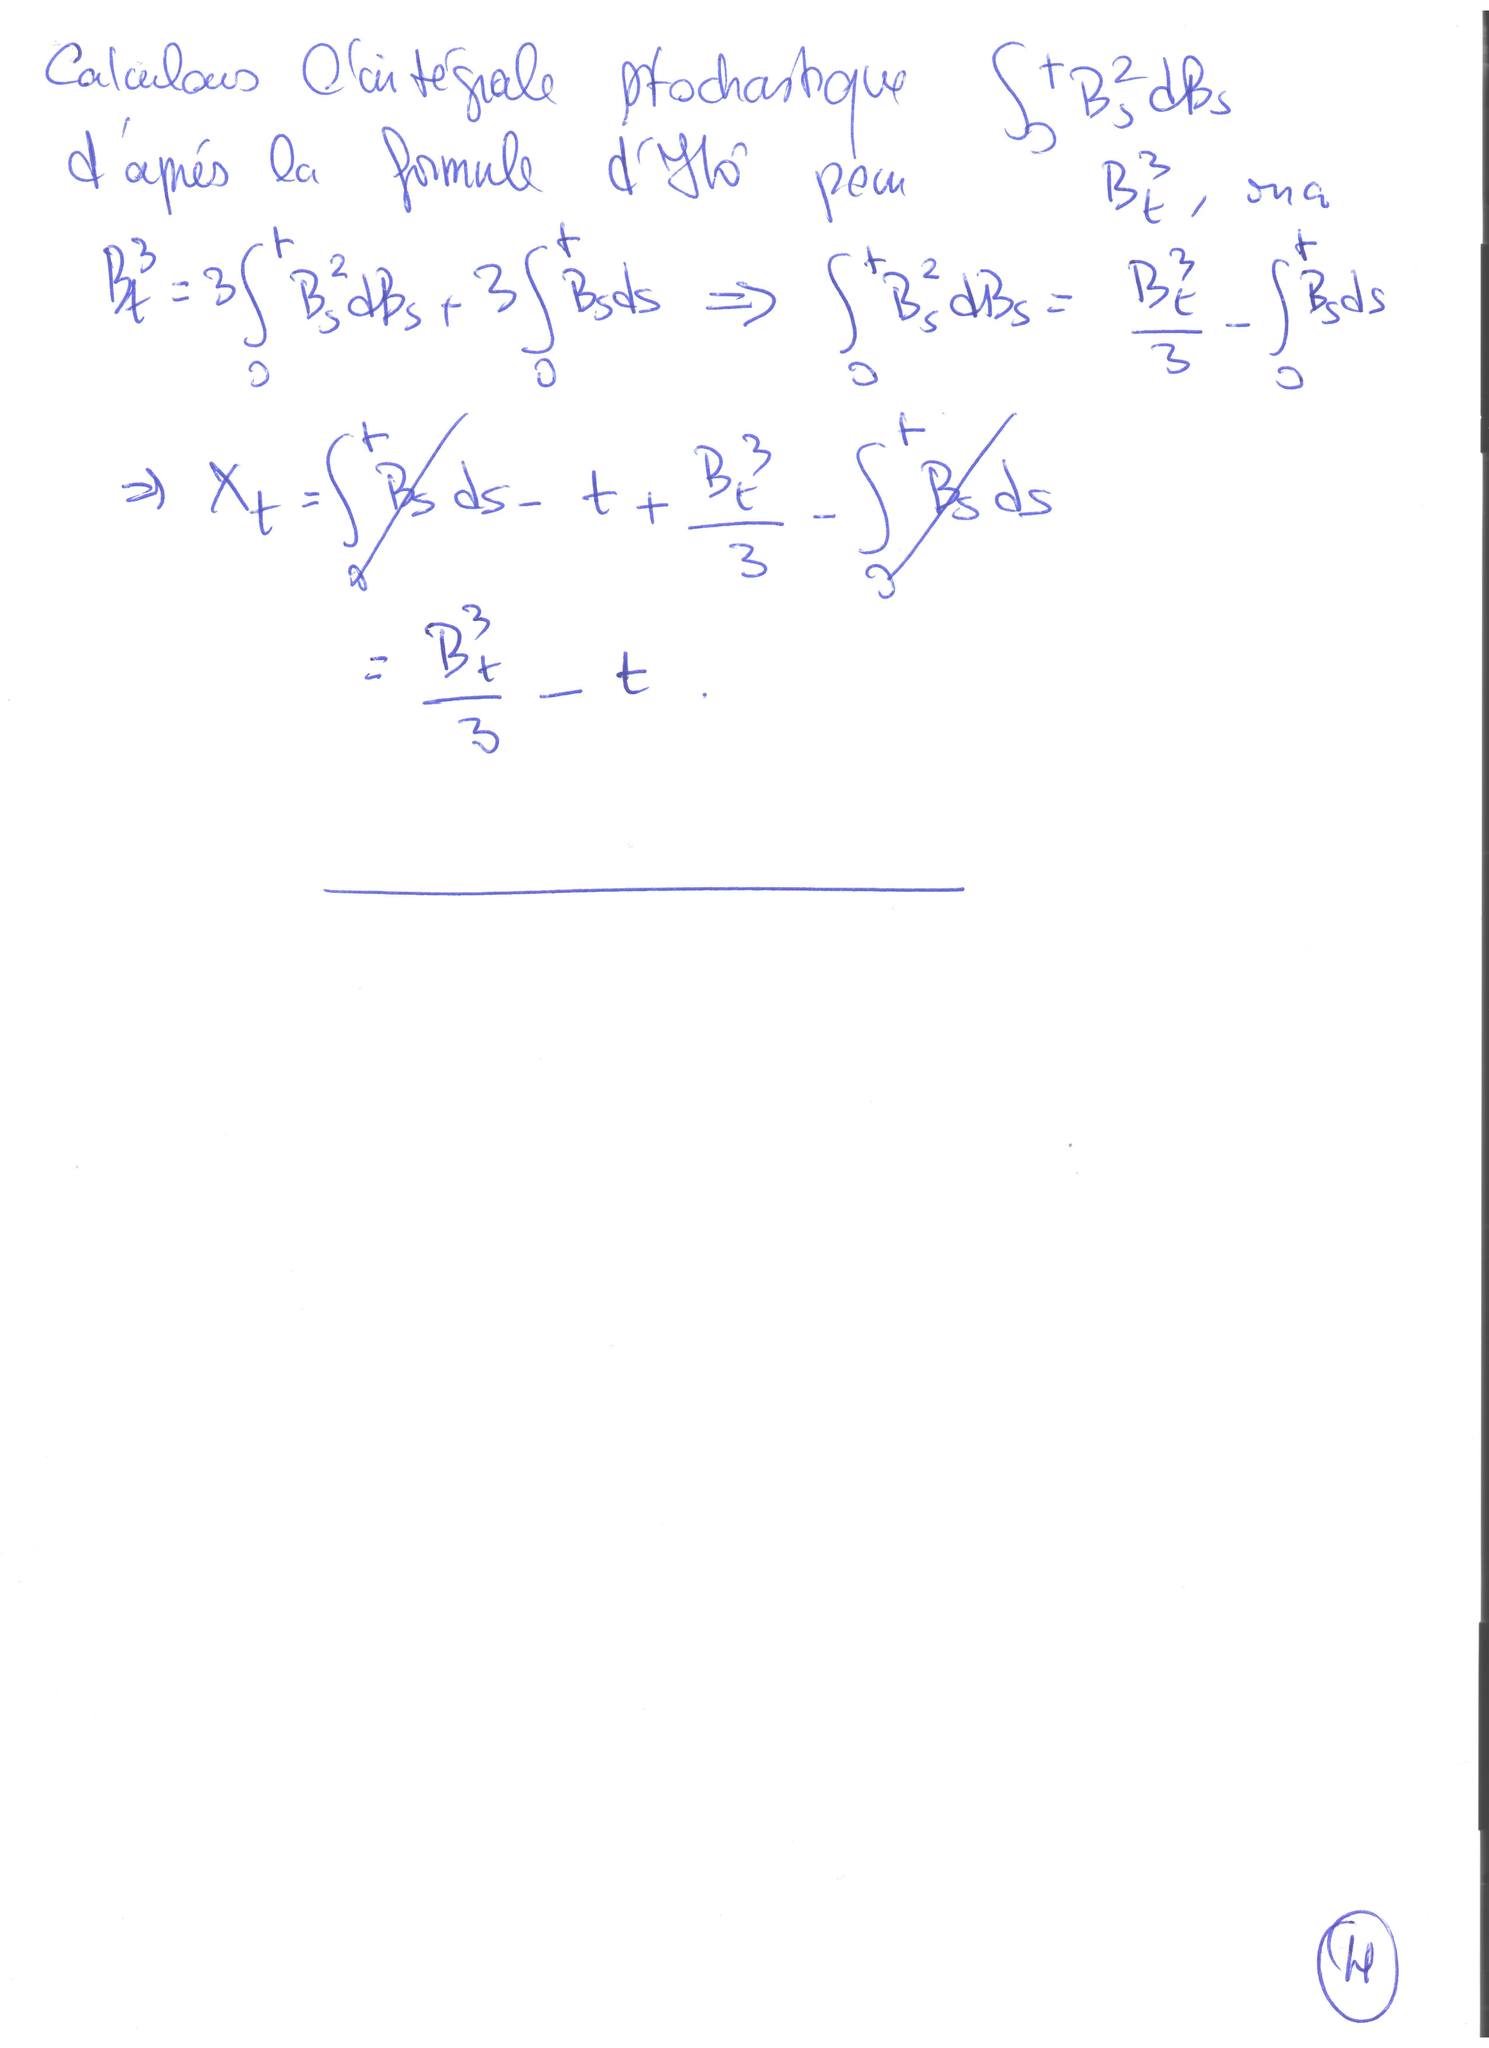 Calculons l'intégrale stochastique ∫₀ᵗ B_s² dB_s
d'après la formule d'Itô pour B_t³, on a
B_t³ = 3∫₀ᵗ B_s² dB_s + 3∫₀ᵗ B_s ds ⇒ ∫₀ᵗ B_s² dB_s = B_t³/3 - ∫₀ᵗ B_s ds
⇒ X_t = ∫₀ᵗ B_s ds - t + B_t³/3 - ∫₀ᵗ B_s ds
= B_t³/3 - t.